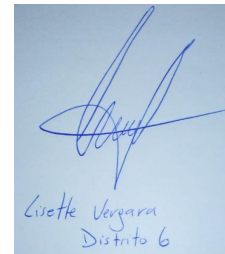 Lisette Vergara
Distrito 6